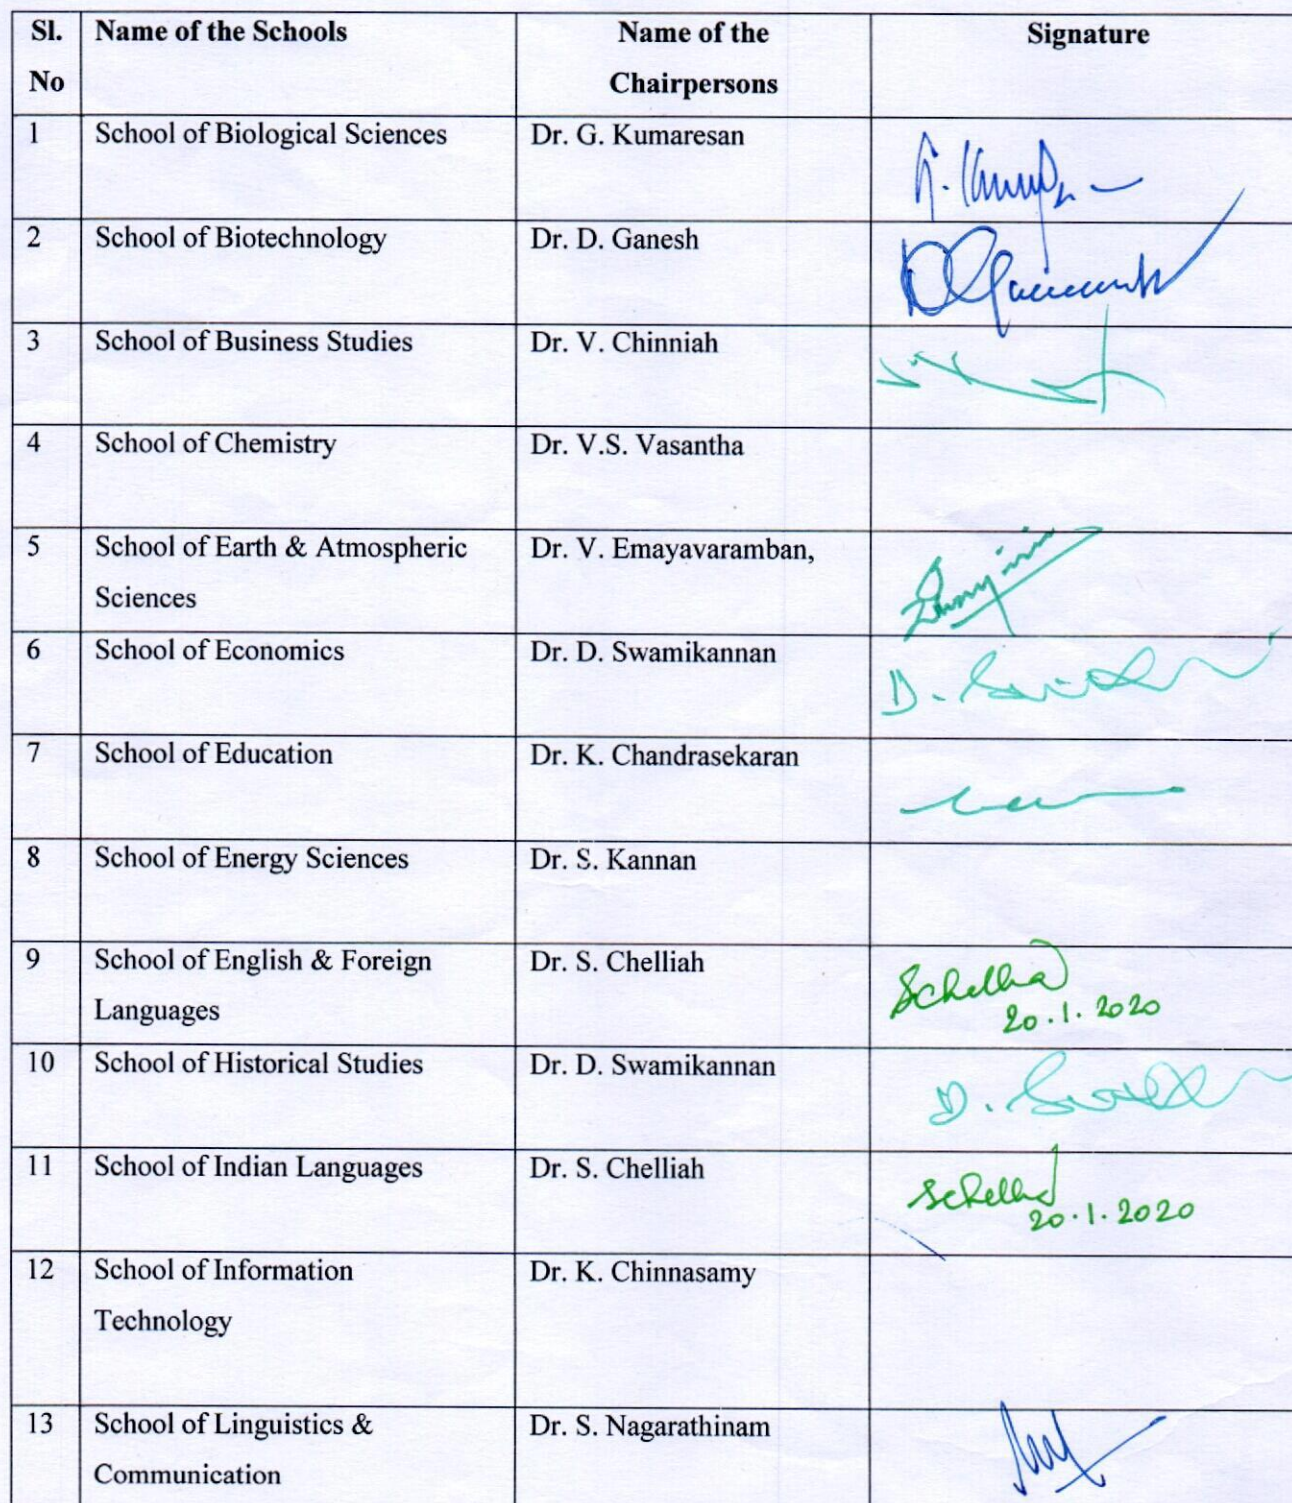 Sl. No Name of the Schools Name of the Chairpersons Signature
1 School of Biological Sciences Dr. G. Kumaresan
2 School of Biotechnology Dr. D. Ganesh
3 School of Business Studies Dr. V. Chinniah
4 School of Chemistry Dr. V.S. Vasantha
5 School of Earth & Atmospheric Dr. V. Emayavaramban,
Sciences
6 School of Economics Dr. D. Swamikannan
7 School of Education Dr. K. Chandrasekaran
8 School of Energy Sciences Dr. S. Kannan
9 School of English & Foreign Dr. S. Chelliah
Languages 20.1.2020
10 School of Historical Studies Dr. D. Swamikannan
11 School of Indian Languages Dr. S. Chelliah
20.1.2020
12 School of Information Dr. K. Chinnasamy
Technology
13 School of Linguistics & Dr. S. Nagarathinam
Communication